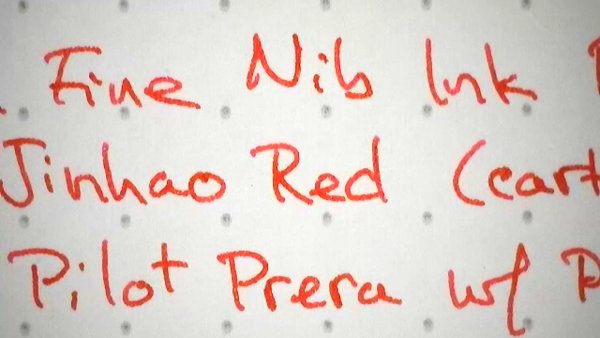 Fine Nib Ink
Jinhao Red (cart
Pilot Prera w/